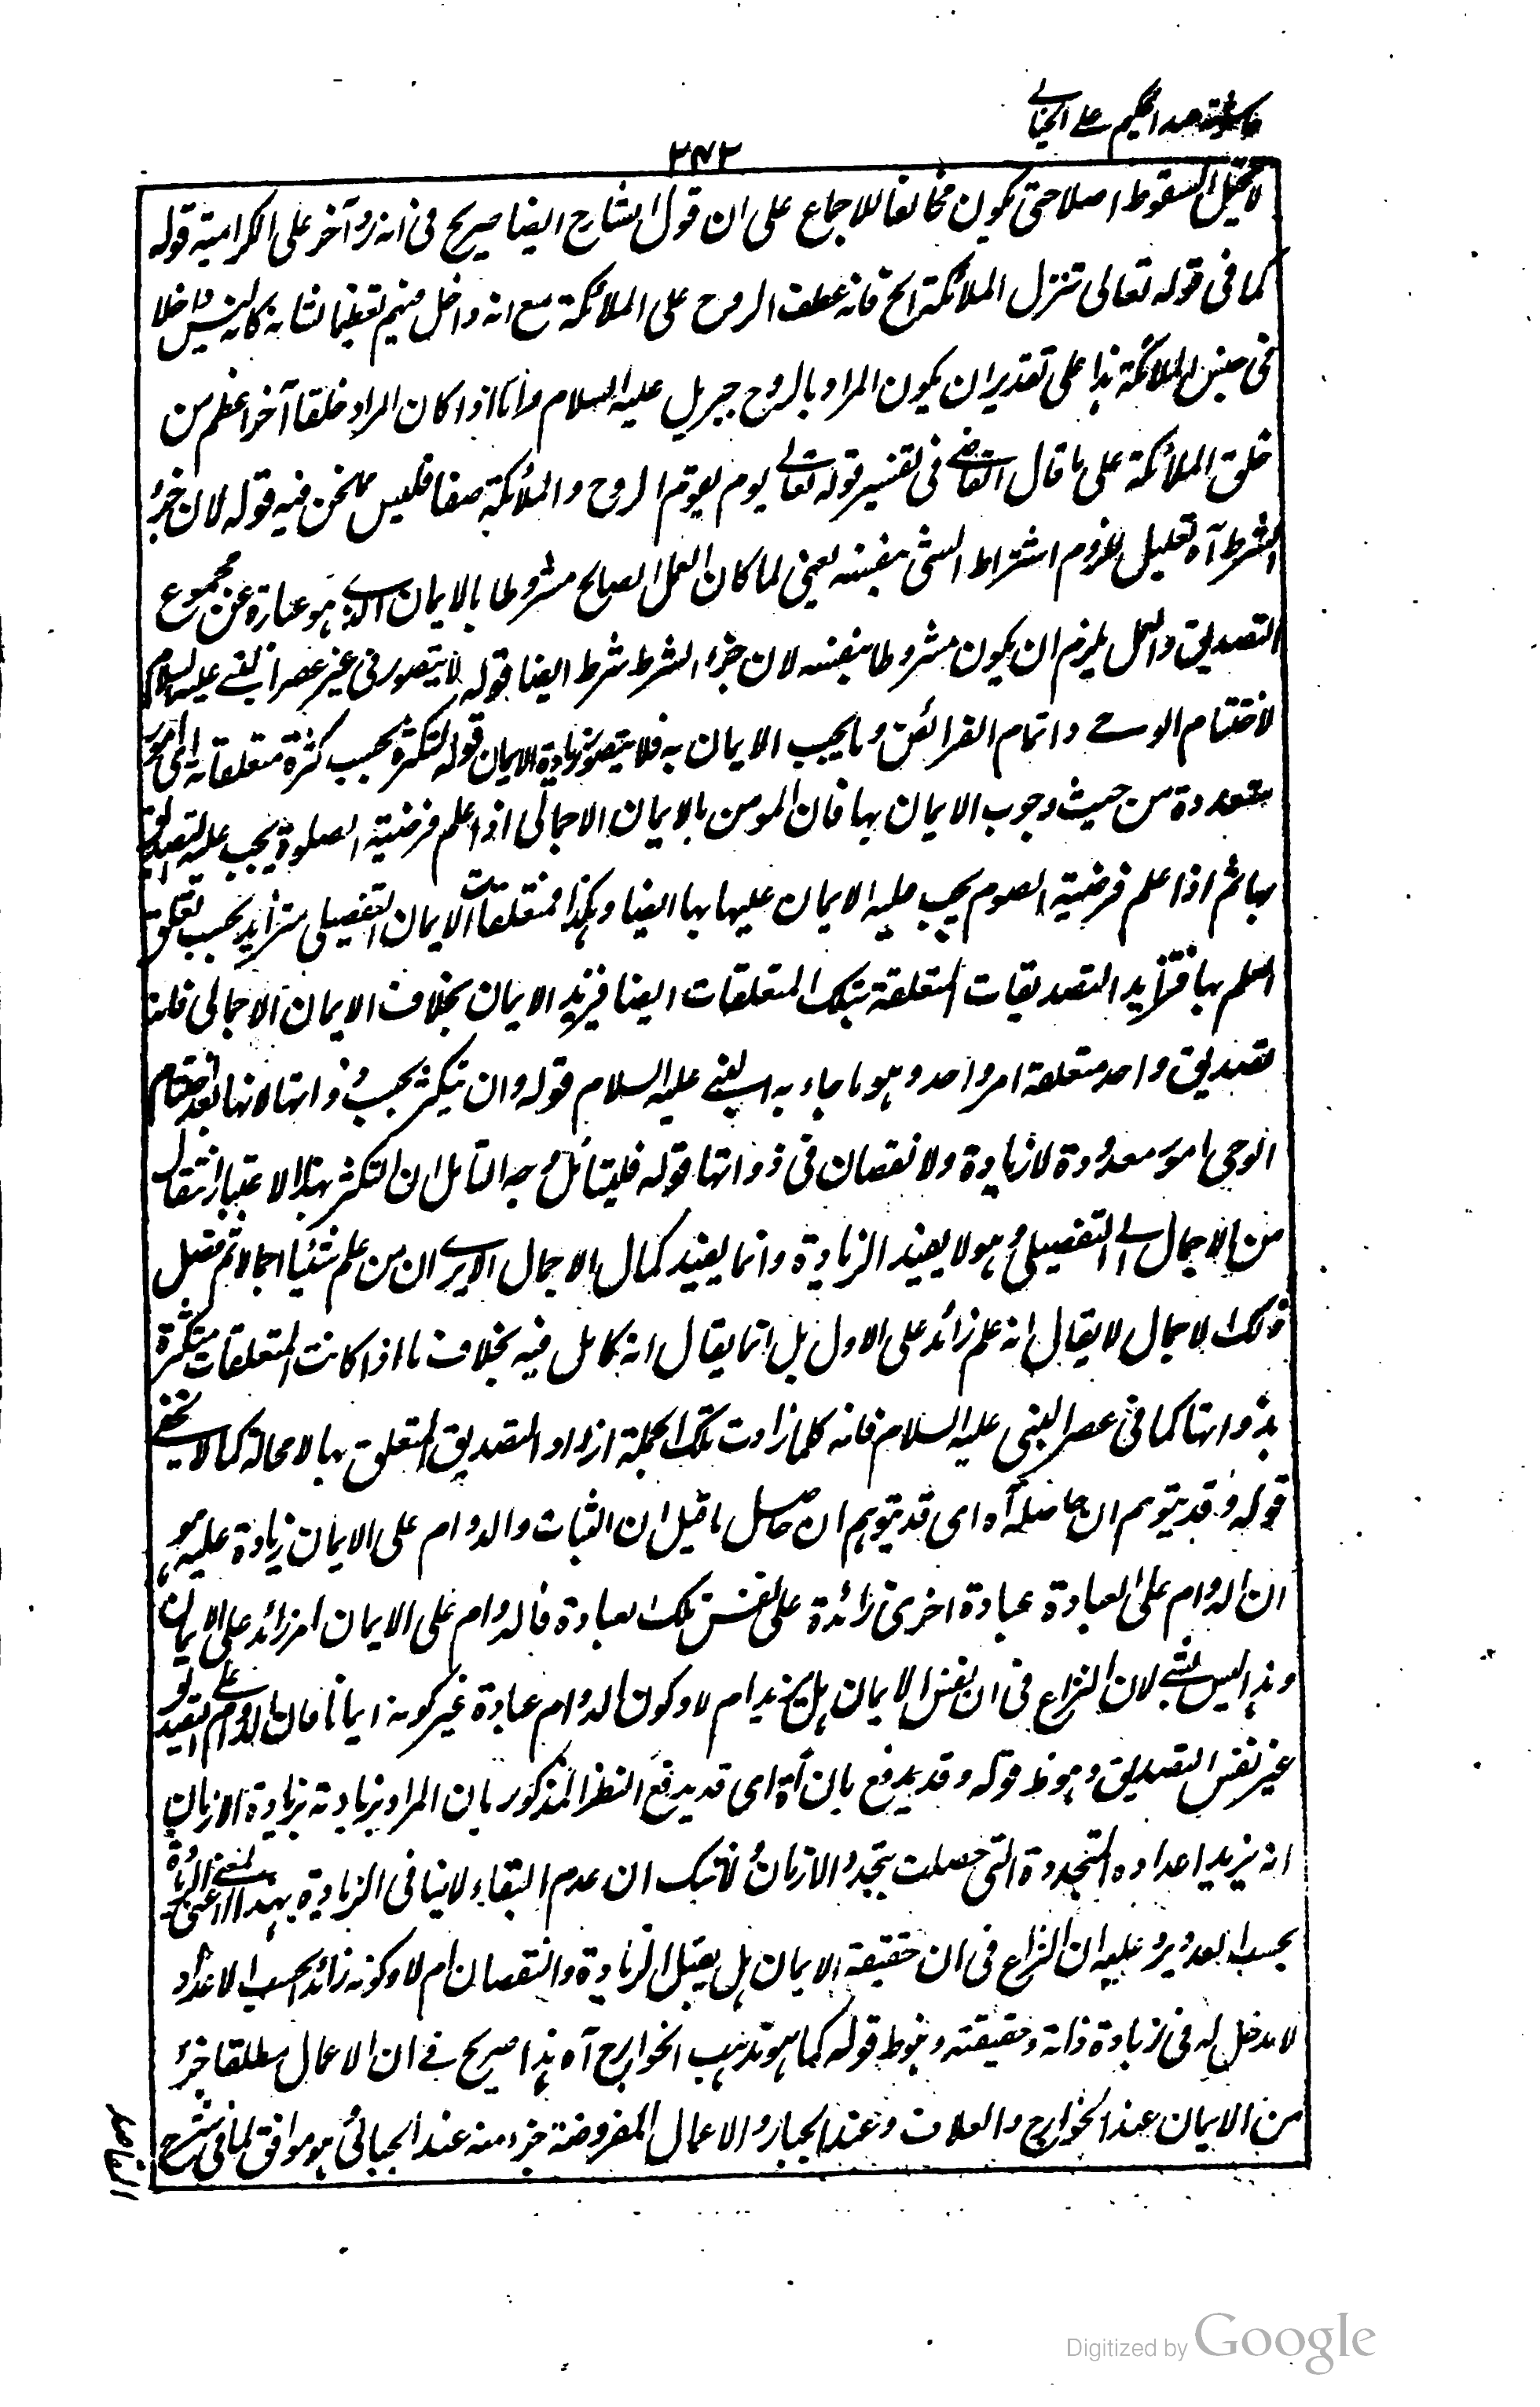 عبد الحكيم على الخيالي
٣٧٢
لا يحتمل السقوط اصلا حتى يكون مخالفا للاجماع على ان قول الشارح ايضا صريح فى انه رد آخر على الكرامية قوله
كما فى قوله تعالى تنزل الملائكة الخ فانه عطف الروح على الملائكة مع انه داخل فيهم تعظيما لشانه كانه ليس داخلا
فى جنس الملائكة هذا على تقدير ان يكون المراد بالروح جبريل عليه السلام واما اذا كان المراد خلقا آخر اعظم من
خلق الملائكة على ما قال القاضى فى تفسير قوله تعالى يوم يقوم الروح والملائكة صفا فليس مما نحن فيه قوله لان جزء
الشرط آه تعليل للزوم اشتراط الشئ بنفسه يعنى لما كان العمل الصالح مشروطا بالايمان الذى هو عبارة عن مجموع
التصديق والعمل يلزم ان يكون مشروطا بنفسه لان جزء الشرط شرط ايضا قوله لا يتصور فى غير عصر النبى عليه السلام
لاختتام الوحى واتمام الفرائض وما يجب الايمان به فلا يتصور زيادة الايمان قوله لتكثره بحسب كثرة متعلقاته اى امور
متعددة من حيث وجوب الايمان بها فان المومن بالايمان الاجمالى اذا علم فرضية الصلوة يجب عليه التصديق
بها ثم اذا علم فرضية الصوم يجب عليه الايمان عليها بها ايضا وهكذا فمتعلقات الايمان التفصيلى متزايد بحسب تعلق
العلم بها فتزايد التصديقات المتعلقة بتلك المتعلقات ايضا فيزيد الايمان بخلاف الايمان الاجمالى فانه
تصديق واحد متعلقه امر واحد وهو ما جاء به النبى عليه السلام قوله وان تيكثر بحسب ذواتها لانها بعد اختتام
الوحى امور معدودة لا زيادة ولا نقصان فى ذواتها قوله فليتامل وجه التامل ان التكثر بهذا الاعتبار انتقال
من الاجمال الى التفصيل وهو لا يفيد الزيادة وانما يفيد كمال الاجمال الا يرى ان من علم شئيا اجمالا ثم فصل
ذلك الاجمال لا يقال انه علم زائد على الاول بل انما يقال انه كامل فيه بخلاف ما اذا كانت المتعلقات متكثرة
بذواتها كما فى عصر النبى عليه السلام فانه كلما زادت تلك الجملة ازداد التصديق المتعلق بها لا محالة كما لا يخفى
قوله وقد يتوهم ان حاصله آه اى قد يتوهم ان حاصل ما قيل ان الثبات والدوام على الايمان زيادة عليه هو
ان الدوام على العبادة عبادة اخرى زائدة على نفس تلك العبادة فالدوام على الايمان امر زائد على الايمان
وهذا ليس بشئ لان النزاع فى ان نفس الايمان هل يزيد ام لا وكون الدوام عبادة غير كونه ايمانا فان الدوام على التصديق
غير نفس التصديق وهو ظ قوله وقد يدفع بان آه اى قد يدفع النظر المذكور بان المراد بزيادته بزيادة الازمان
انه يزيد اعداده المتجددة التى حصلت بتجدد الازمان لا شك ان عدم البقاء لا ينافى الزيادة بهذا المعنى اعنى الزيادة
بحسب العدد ويرد عليه ان النزاع فى ان حقيقة الايمان هل يقبل الزيادة والنقصان ام لا وكونه زائدا بحسب الاعداد
لا مدخل له فى زيادة ذاته وحقيقته وهو ظ قوله كما هو مذهب الخوارج آه هذا صريح فى ان الاعمال مطلقا جزء
من الايمان عند الخوارج والعلاف وعبد الجبار والاعمال المفروضة جزء منه عند الجبائى هو موافق لما فى شرح